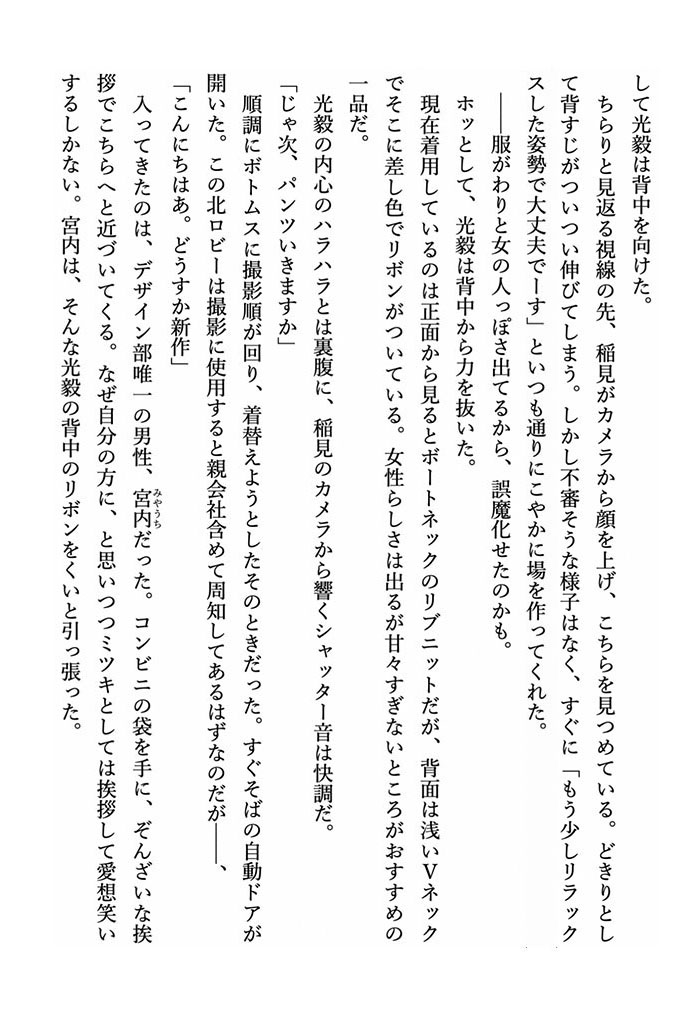 して光毅は背中を向けた。
ちらりと見返る視線の先、稲見がカメラから顔を上げ、こちらを見つめている。どきりとし
て背すじがついつい伸びてしまう。しかし不審そうな様子はなく、すぐに「もう少しリラック
スした姿勢で大丈夫でーす」といつも通りにこやかに場を作ってくれた。
――服がわりと女の人っぽさ出てるから、誤魔化せたのかも。
ホッとして、光毅は背中から力を抜いた。
現在着用しているのは正面から見るとボートネックのリブニットだが、背面は浅いVネック
でそこに差し色でリボンがついている。女性らしさは出るが甘々すぎないところがおすすめの
一品だ。
光毅の内心のハラハラとは裏腹に、稲見のカメラから響くシャッター音は快調だ。
「じゃ次、パンツいきますか」
順調にボトムスに撮影順が回り、着替えようとしたそのときだった。すぐそばの自動ドアが
開いた。この北ロビーは撮影に使用すると親会社含めて周知してあるはずなのだが――、
「こんにちはあ。どうすか新作」
入ってきたのは、デザイン部唯一の男性、宮内みやうちだった。コンビニの袋を手に、ぞんざいな挨
拶でこちらへと近づいてくる。なぜ自分の方に、と思いつつミツキとしては挨拶して愛想笑い
するしかない。宮内は、そんな光毅の背中のリボンをくいと引っ張った。